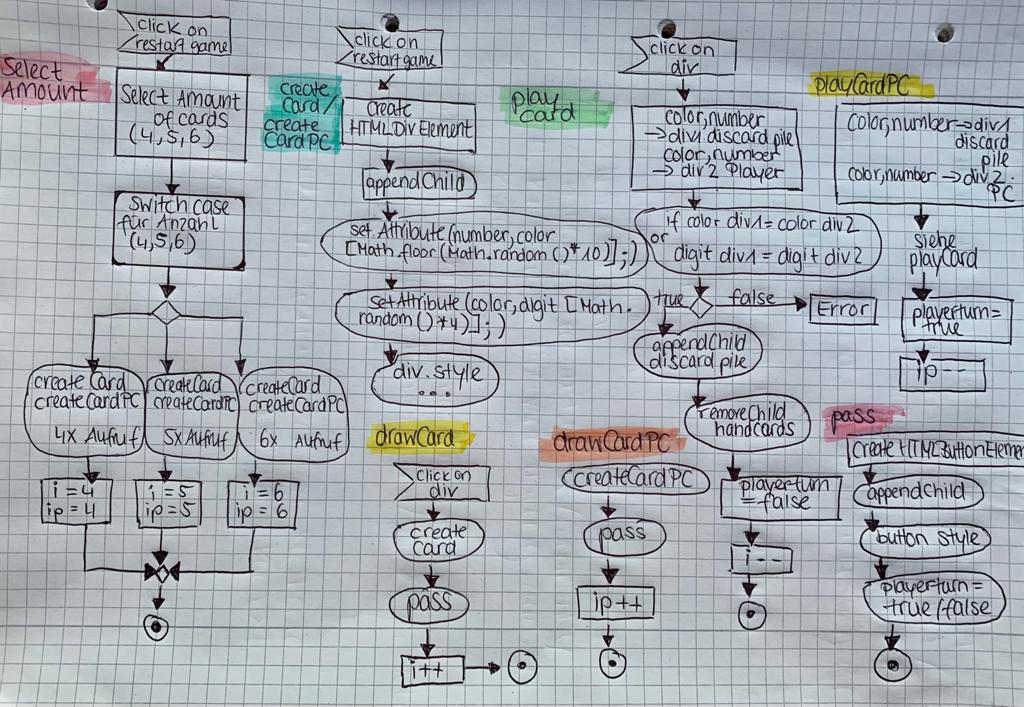 click on
restart game
Select
Amount
Select Amount
of cards
(4,5,6)
Switch case
für Anzahl
(4,5,6)
createCard
createCardPC
4x Aufruf
createCard
createCardPC
5x Aufruf
createCard
createCardPC
6x Aufruf
i = 4
ip = 4
i = 5
ip = 5
i = 6
ip = 6
click on
restart game
create
Card/
create
CardPC
create
HTMLDivElement
appendChild
set Attribute (number, color
[Math.floor (Math.random ()* 10)];)
setAttribute (color, digit [Math.
random () *4)];)
div. style
...
drawCard
click on
div
create
Card
pass
i++
click on
div
play
Card
color, number
→ div1. discard pile
color, number
→ div2 Player
if color div1 = color div2
or
digit div1 = digit div2
true
false
Error
appendChild
discard pile
removeChild
handcards
playerturn
= false
i--
drawCardPC
createCardPC
pass
ip++
playCardPC
color, number → div1
discard
pile
color, number → div2.
PC
siehe
playCard
playerturn =
true
ip--
pass
create HTMLButtonElemen
appendChild
button style
playerturn =
true/false